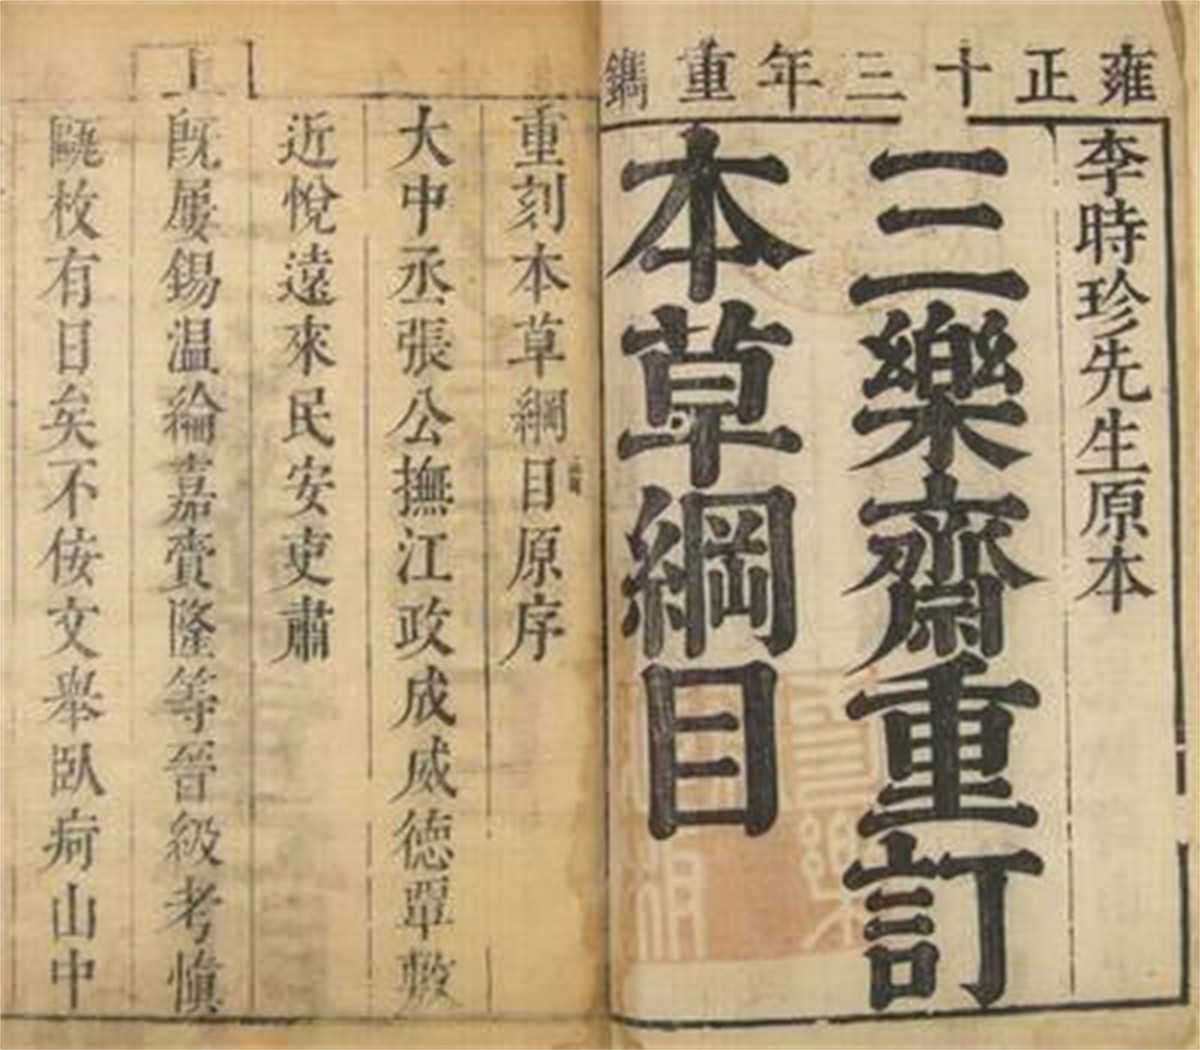 雍正十三年重鐫
李時珍先生原本
三樂齋重訂
本草綱目
重刻本草綱目原序
大中丞張公撫江政成威德覃敷
近悅遠來民安吏肅
上既屢錫温綸嘉賚隆等晉級考慎
甌枚有日矣不佞文舉臥疴山中